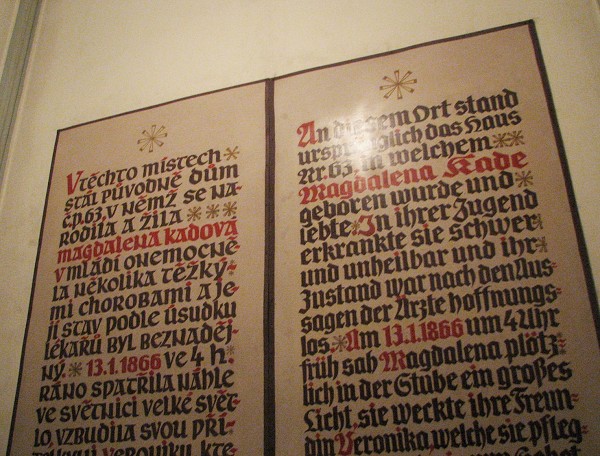 V těchto místech
stál původně dům
čp. 63, v němž se na-
rodila a žila
Magdalena Kadova
v mládí onemocně-
la několika těžký-
mi chorobami a je-
jí stav podle úsudku
lékařů byl beznaděj-
ný. 13.1.1866 ve 4 h.
ráno spatřila náhle
ve světnici velké svět-
lo, vzbudila svou pří-
Veroniku, kte-
An diesem Ort stand
ursprünglich das Haus
Nr. 63, in welchem
Magdalena Kade
geboren wurde und
lebte. In ihrer Jugend
erkrankte sie schwer
und unheilbar und ihr
Zustand war nach den Aus-
sagen der Ärzte hoffnungs-
los. Am 13.1.1866 um 4 Uhr
früh sah Magdalena plötz-
lich in der Stube ein großes
Licht, sie weckte ihre Freun-
din Veronika, welche sie pfleg-